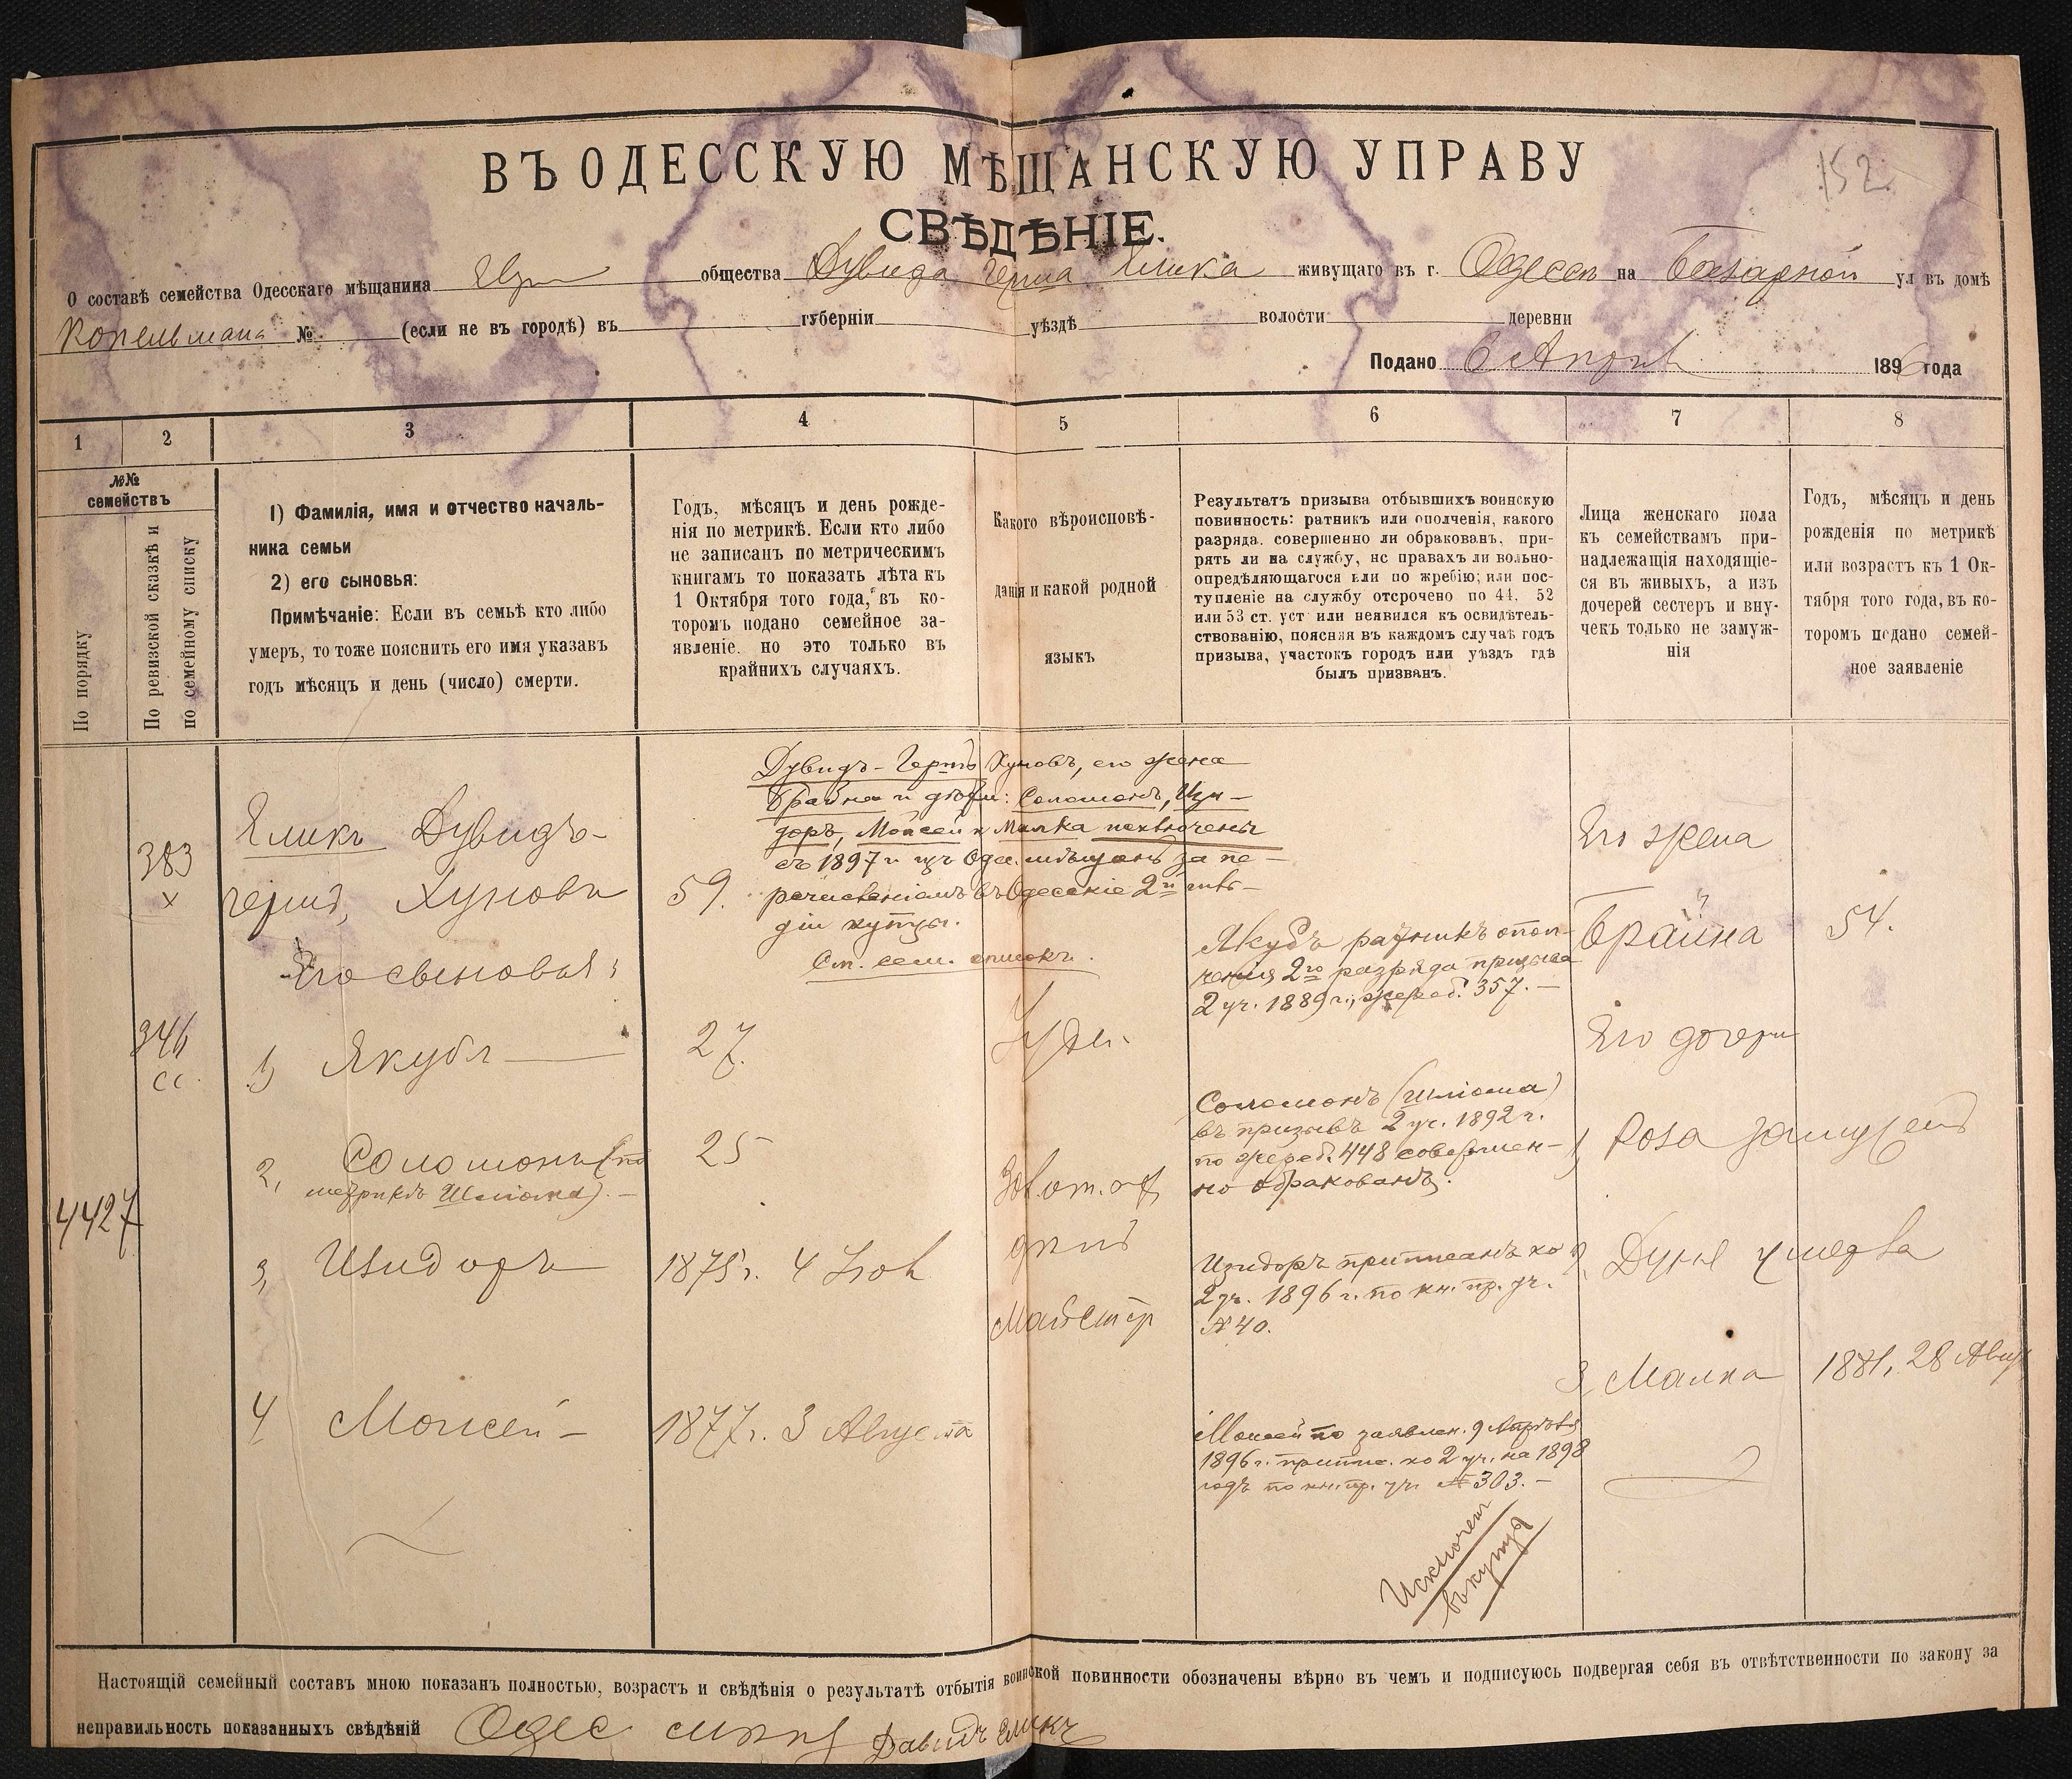 152
ВЪ ОДЕССКУЮ МѢЩАНСКУЮ УПРАВУ
СВѢДѢНІЕ.
О составѣ семейства Одесскаго мѣщанина Евр общества Дувида Герша Елика живущаго въ г. Одессѣ на Базарной ул въ домѣ
Копельмана № (если не въ городѣ) въ губерніи уѣздѣ волости деревни
Подано 6 Апрѣ 1896 года
1 2 3 4 5 6 7 8
№№ семействъ
По порядку
По ревизской сказкѣ и
по семейному списку
1) Фамилія, имя и отчество началь-
ника семьи
2) его сыновья:
Примѣчаніе: Если въ семьѣ кто либо
умеръ, то тоже пояснить его имя указавъ
годъ мѣсяцъ и день (число) смерти.
Годъ, мѣсяцъ и день рожде-
нія по метрикѣ. Если кто либо
не записанъ по метрическимъ
книгамъ то показать лѣта къ
1 Октября того года, въ ко-
торомъ подано семейное за-
явленіе. но это только въ
крайнихъ случаяхъ.
Какого вѣроисповѣ-
данія и какой родной
языкъ
Результатъ призыва отбывшихъ воинскую
повинность: ратникъ или ополченія, какого
разряда. совершенно ли обракованъ, при-
рять ли на службу, нс правахъ ли вольно-
опредѣляющагося или по жребію; или пос-
тупленіе на службу отсрочено по 44, 52
или 53 ст. уст или неявился къ освидѣтель-
ствованію, поясняя въ каждомъ случаѣ годъ
призыва, участокъ городъ или уѣздъ гдѣ
былъ призванъ.
Лица женскаго пола
къ семействамъ при-
надлежащія находящіе-
ся въ живыхъ, а изъ
дочерей сестеръ и вну-
чекъ только не замуж-
нія
Годъ, мѣсяцъ и день
рожденія по метрикѣ
или возрастъ къ 1 Ок-
тября того года, въ ко-
торомъ подано семей-
ное заявленіе
Дувидъ-Гершъ Хуновъ, его жена
Брайна и дѣти: Соломонъ, Изи-
доръ, Мойсей и Малка исключены
съ 1897 г. изъ Одес. мѣщанъ за пе-
речисленіемъ въ Одесскіе 2й гиль-
діи купцы.
См. сем. списокъ.
383
х
Еликъ Дувидъ-
Гершъ, Хуновъ
59.
Его сыновья:
Его жена
Брайна 54.
346
сс.
1) Якубъ 27.
Іуде.
Якубъ ратникъ опол-
ченія 2го разряда призыва
2 уч. 1889 г., жереб. 357.
Его дочери
4427
2, Соломонъ (по
метрикѣ Шліома). 25
Соломонъ (Шліома)
въ призывъ 2 уч. 1892 г.
по жереб. 448 совершен-
но обракованъ.
1, Rosa замужемъ
3, Изидоръ 1875 г. 4
Изидоръ приписанъ ко
2 уч. 1896 г. по кн. пр. уч.
№ 40.
2, умерла
3, Малка 1881, 28 Авгус
4 Моисей 1877 г. 3 Августа
Моисей по заявлен. 9 Апрѣля
1896 г. припис. ко 2 уч. на 1898
годъ по кн. пр. уч. № 303.
Исключен
въ купцы
Настоящій семейный составъ мною показанъ полностью, возрастъ и свѣдѣнія о результатѣ отбытія воинской повинности обозначены вѣрно въ чемъ и подписуюсь подвергая себя въ отвѣтственности по закону за
неправильность показанныхъ свѣдѣній Одес Давидъ Еликъ